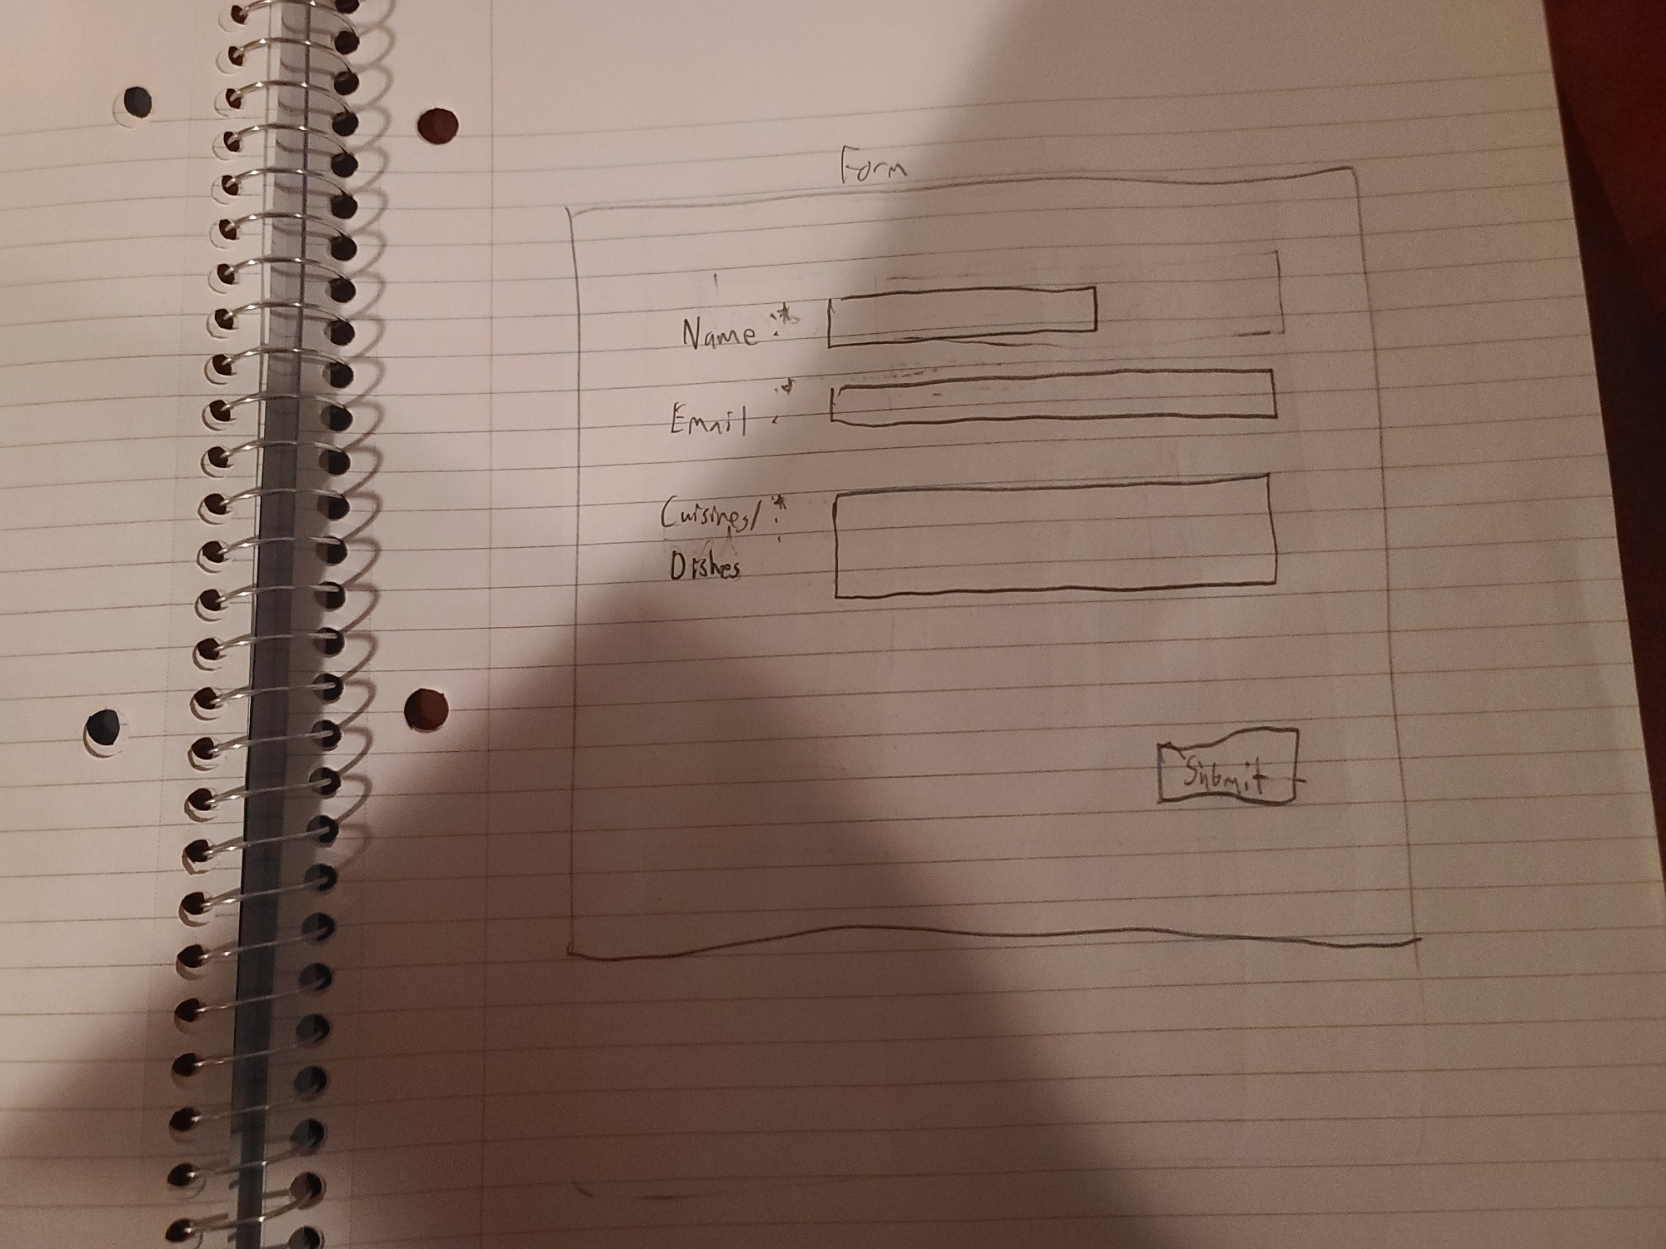 Form
Name :*
Email :*
Cuisines/ :*
Dishes
Submit